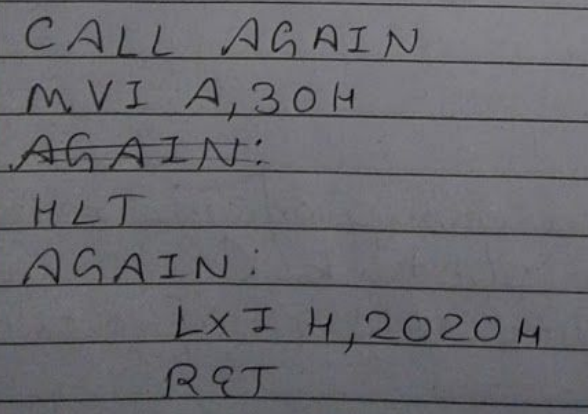 CALL AGAIN
MVI A,30H
AGAIN:
HLT
AGAIN:
LXI H,2020H
RET